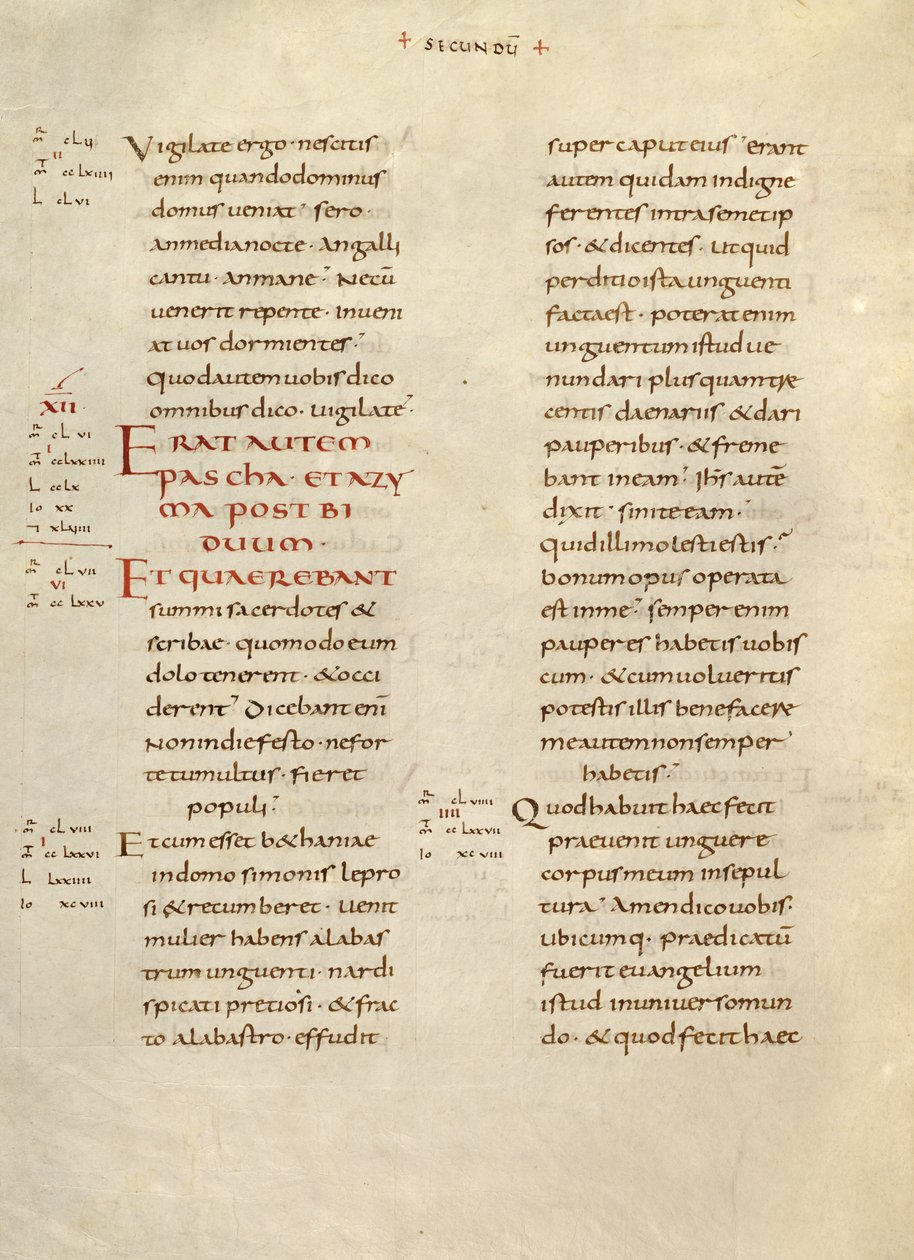 + SECUNDŪ +
mr cLv
II
mt ccLxiiii
L cLvi
Vigilate ergo · nescitis
enim quandodominus
domus veniat sero ·
anmedianocte · angalli
cantu · anmane · Necū
venerit repente · inveni
at vos dormientes ·
Quodautem vobis dico
omnibus dico · vigilate ·
XII ·
mr cL vi
I
mt ccLxxiiii
L ccLx
Io xx
xLviii
ERAT AUTEM
PASCHA · ET AZY
MA POST BI
DUUM ·
mr cL vii
VI
mt cc Lxxv
ET QUAEREBANT
summi sacerdotes &
scribae · quomodo eum
dolo tenerent · &occi
derent Dicebant enī
Nonindiefesto · nefor
te tumultus · fieret
populi ·
mr cL viii
I
mt cc Lxxvi
L Lxxiiii
Io xcviii
Et cum esset b&haniae
indomo simonis lepro
si &recumberet · Venit
mulier habens alabas
trum unguenti · nardi
spicati pretiosi · &frac
to alabastro · effudit
super caput eius Erant
autem quidam indigne
ferentes intrasemetip
sos · &dicentes · Utquid
perditio ista unguenti
factaest · poterat enim
unguentum istud ve
nundari plusquamtre
centis daenariis &dari
pauperibus · &freme
bant ineam Ihs autē
dixit sinite eam ·
Quid illi molesti estis ·
bonum opus operata
est inme semper enim
pauperes habetis vobis
cum · &cum volueritis
potestis illis benefacere
me autem non semper
habetis ·
mr cL viiii
IIII
mt cc Lxxvii
Io xc viii
Quod habuit haec fecit
praevenit unguere
corpus meum insepul
tura Amen dico vobis ·
ubicumq · praedicatū
fuerit evangelium
istud inuniverso mun
do · &quod fecit haec